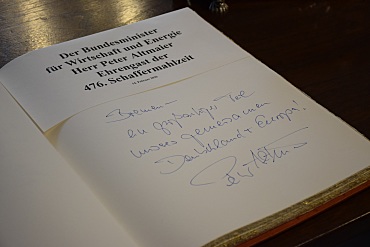 Der Bundesminister
für Wirtschaft und Energie
Herr Peter Altmaier
Ehrengast der
476. Schaffermahlzeit
Bremen –
ein großartiger Teil
unseres gemeinsamen
Deutschland + Europa!
Peter Altmaier